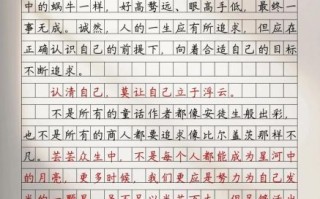 中的蜗牛一样，好高骛远、眼高手低，最终一
事无成。诚然，人的一生应有所追求，但应在
正确认识自己的前提下，向着合适自己的目标
不断追求。
认清自己，莫让自己立于浮云。
不是所有的童话作者都像安徒生般出彩，
也不是所有的商人都要追求像比尔盖茨那样不
凡。芸芸众生中，不是每个人都能成为星河中
的月亮，更多时候，我们更应是努力为自己发